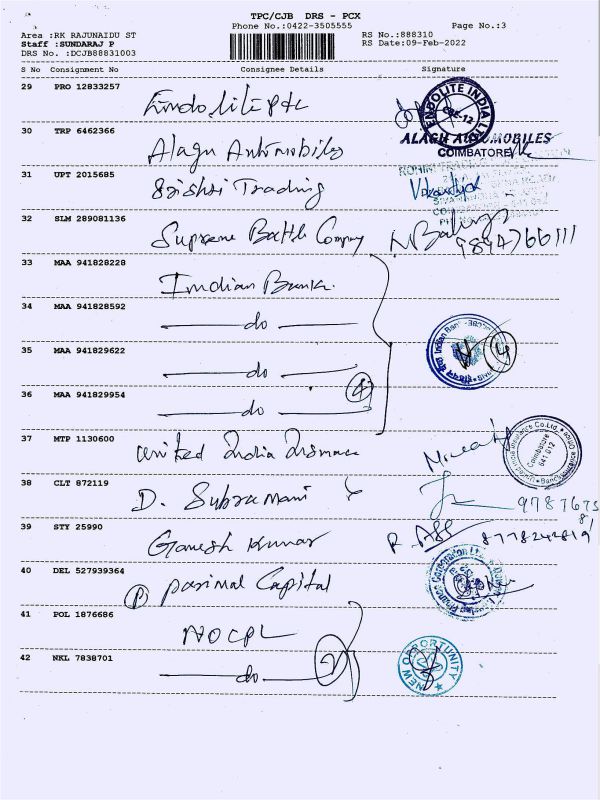 TPC/CJB DRS - PCX
Phone No.:0422-3505555
Page No.:3
Area :RK RAJUNAIDU ST
RS No.:888310
Staff :SUNDARAJ P
RS Date:09-Feb-2022
DRS No. :DCJB88831003
S No Consignment No Consignee Details Signature
29 PRO 12833257
Endolite Pte
ENDOLITE INDIA LTD
CBE-12
30 TRP 6462366
Alagu Automobiles
ALAGH AUTOMOBILES
COIMBATORE
31 UPT 2015685
Srishti Trading
32 SLM 289081136
Supreme Battle Company
9894766111
33 MAA 941828228
Indian Bank
34 MAA 941828592
do
35 MAA 941829622
do
Indian Bank
4
36 MAA 941829954
do
4
37 MTP 1130600
United India Insurance
United India Insurance Co.Ltd.
Coimbatore
641 012
38 CLT 872119
D. Subramani
39 STY 25990
Ganesh Kumar
40 DEL 527939364
Parimal Capital
41 POL 1876686
NOCPL
42 NKL 7838701
do
2
NEW OPPORTUNITY